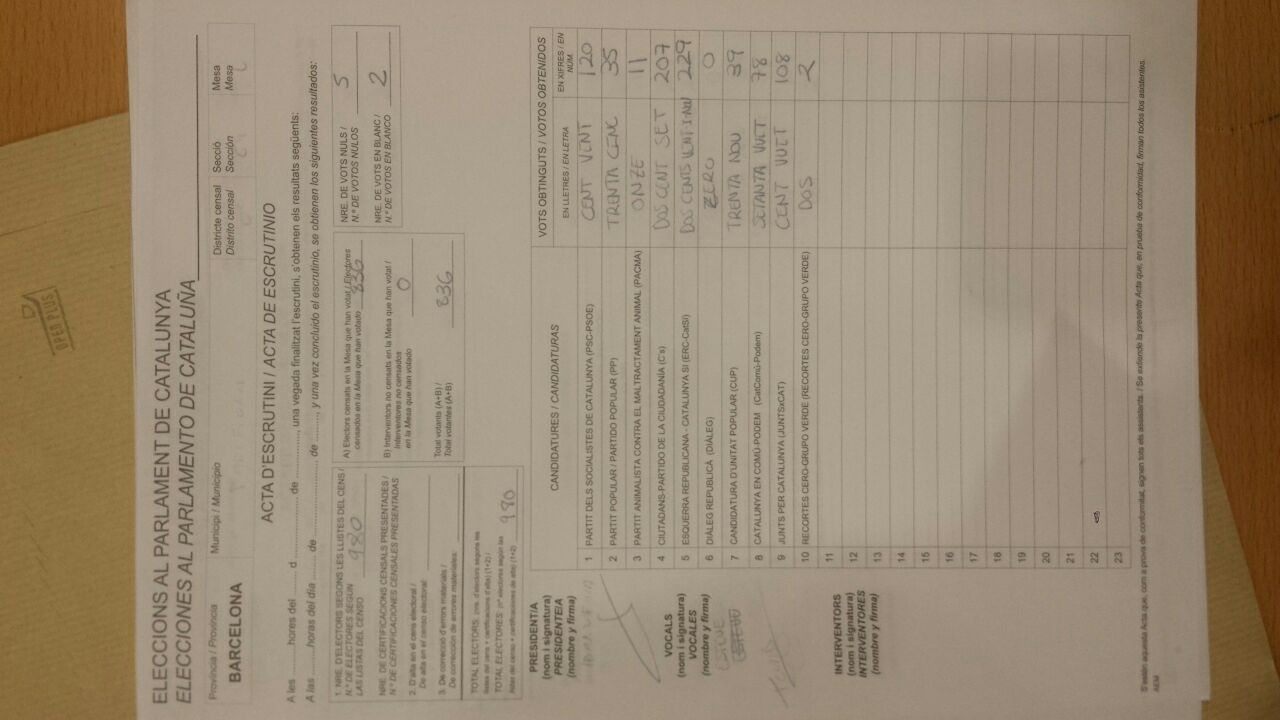 OPEN PLUS
ELECCIONS AL PARLAMENT DE CATALUNYA
ELECCIONES AL PARLAMENTO DE CATALUÑA
Província / Provincia
BARCELONA
Municipi / Municipio
Districte censal
Distrito censal
Secció
Sección
Mesa
Mesa
ACTA D'ESCRUTINI / ACTA DE ESCRUTINIO
A les ........ hores del ........ d ........ de ........, una vegada finalitzat l'escrutini, s'obtenen els resultats següents:
A las ........ horas del día ........ de ........ de ........, y una vez concluido el escrutinio, se obtienen los siguientes resultados:
1. NRE. D'ELECTORS SEGONS LES LLISTES DEL CENS /
N.º DE ELECTORES SEGÚN
LAS LISTAS DEL CENSO 980
NRE. DE CERTIFICACIONS CENSALS PRESENTADES /
N.º DE CERTIFICACIONES CENSALES PRESENTADAS
2. D'alta en el cens electoral /
De alta en el censo electoral:
3. De correcció d'errors materials /
De corrección de errores materiales:
TOTAL ELECTORS: (nre. d'electors segons les
llistes del cens + certificacions d'alta) (1+2) /
TOTAL ELECTORES: (nº electores según las
listas del censo + certificaciones de alta) (1+2) 980
A) Electors censats en la Mesa que han votat / Electores
censados en la Mesa que han votado 836
B) Interventors no censats en la Mesa que han votat /
Interventores no censados
en la Mesa que han votado 0
Total votants (A+B) /
Total votantes (A+B) 836
NRE. DE VOTS NULS /
N.º DE VOTOS NULOS 5
NRE. DE VOTS EN BLANC /
N.º DE VOTOS EN BLANCO 2
PRESIDENT/A
(nom i signatura)
PRESIDENTE/A
(nombre y firma)
VOCALS
(nom i signatura)
VOCALES
(nombre y firma)
INTERVENTORS
(nom i signatura)
INTERVENTORES
(nombre y firma)
CANDIDATURES / CANDIDATURAS
VOTS OBTINGUTS / VOTOS OBTENIDOS
EN LLETRES / EN LETRA
EN XIFRES / EN NÚM.
1 PARTIT DELS SOCIALISTES DE CATALUNYA (PSC-PSOE) CENT VINT 120
2 PARTIT POPULAR / PARTIDO POPULAR (PP) TRENTA CINC 35
3 PARTIT ANIMALISTA CONTRA EL MALTRACTAMENT ANIMAL (PACMA) ONZE 11
4 CIUTADANS-PARTIDO DE LA CIUDADANÍA (C's) DOS CENT SET 207
5 ESQUERRA REPUBLICANA - CATALUNYA SÍ (ERC-CatSí) DOS CENTS VINT I NOU 229
6 DIÀLEG REPUBLICÀ (DIÀLEG) ZERO 0
7 CANDIDATURA D'UNITAT POPULAR (CUP) TRENTA NOU 39
8 CATALUNYA EN COMÚ-PODEM (CatComú-Podem) SETANTA VUIT 78
9 JUNTS PER CATALUNYA (JUNTSxCAT) CENT VUIT 108
10 RECORTES CERO-GRUPO VERDE (RECORTES CERO-GRUPO VERDE) DOS 2
11
12
13
14
15
16
17
18
19
20
21
22
23
S'estén aquesta Acta que, com a prova de conformitat, signen tots els assistents. / Se extiende la presente Acta que, en prueba de conformidad, firman todos los asistentes.
AEM